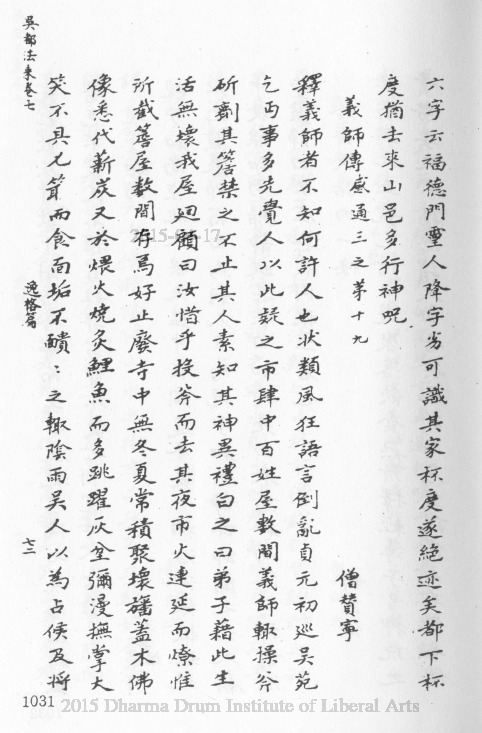 六字云福德門靈人降字劣可識其家杯度遂絕迹矣都下杯
度猶去來山邑多行神呪
義師傳 感通三之第十九 僧贊寧
釋義師者不知何許人也狀類風狂語言倒亂貞元初巡吳苑
乞丐事多先覺人以此疑之市肆中百姓屋數間義師輒操斧
斫劚其簷禁之不止其人素知其神異禮白之曰弟子藉此生
活無壞我屋迴顧曰汝惜乎投斧而去其夜市火連延而燎惟
所截簷屋數間存焉好止廢寺中無冬夏常積聚壞旛蓋木佛
像悉代薪炭又於煨火燒炙鯉魚而多跳躍灰坌彌漫撫掌大
笑不具匕箸而食面垢不靧〻之輒陰雨吳人以為占候及將
吳都法乘卷七 逸格篇 七二
1031
2015-03-17
2015 Dharma Drum Institute of Liberal Arts